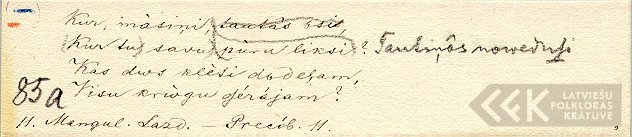 Kur, māsiņi, tautās īsit,
(Kur tu) savu pūru liksi? Tautiņās nowedusi
Kas dws klēti dodejam,
Visu kriwgu dzērājam?
85a
11. Mangul. Lazd. — Precib. 11.
LATVIEŠU
FOLKLORAS
KRĀTUVE